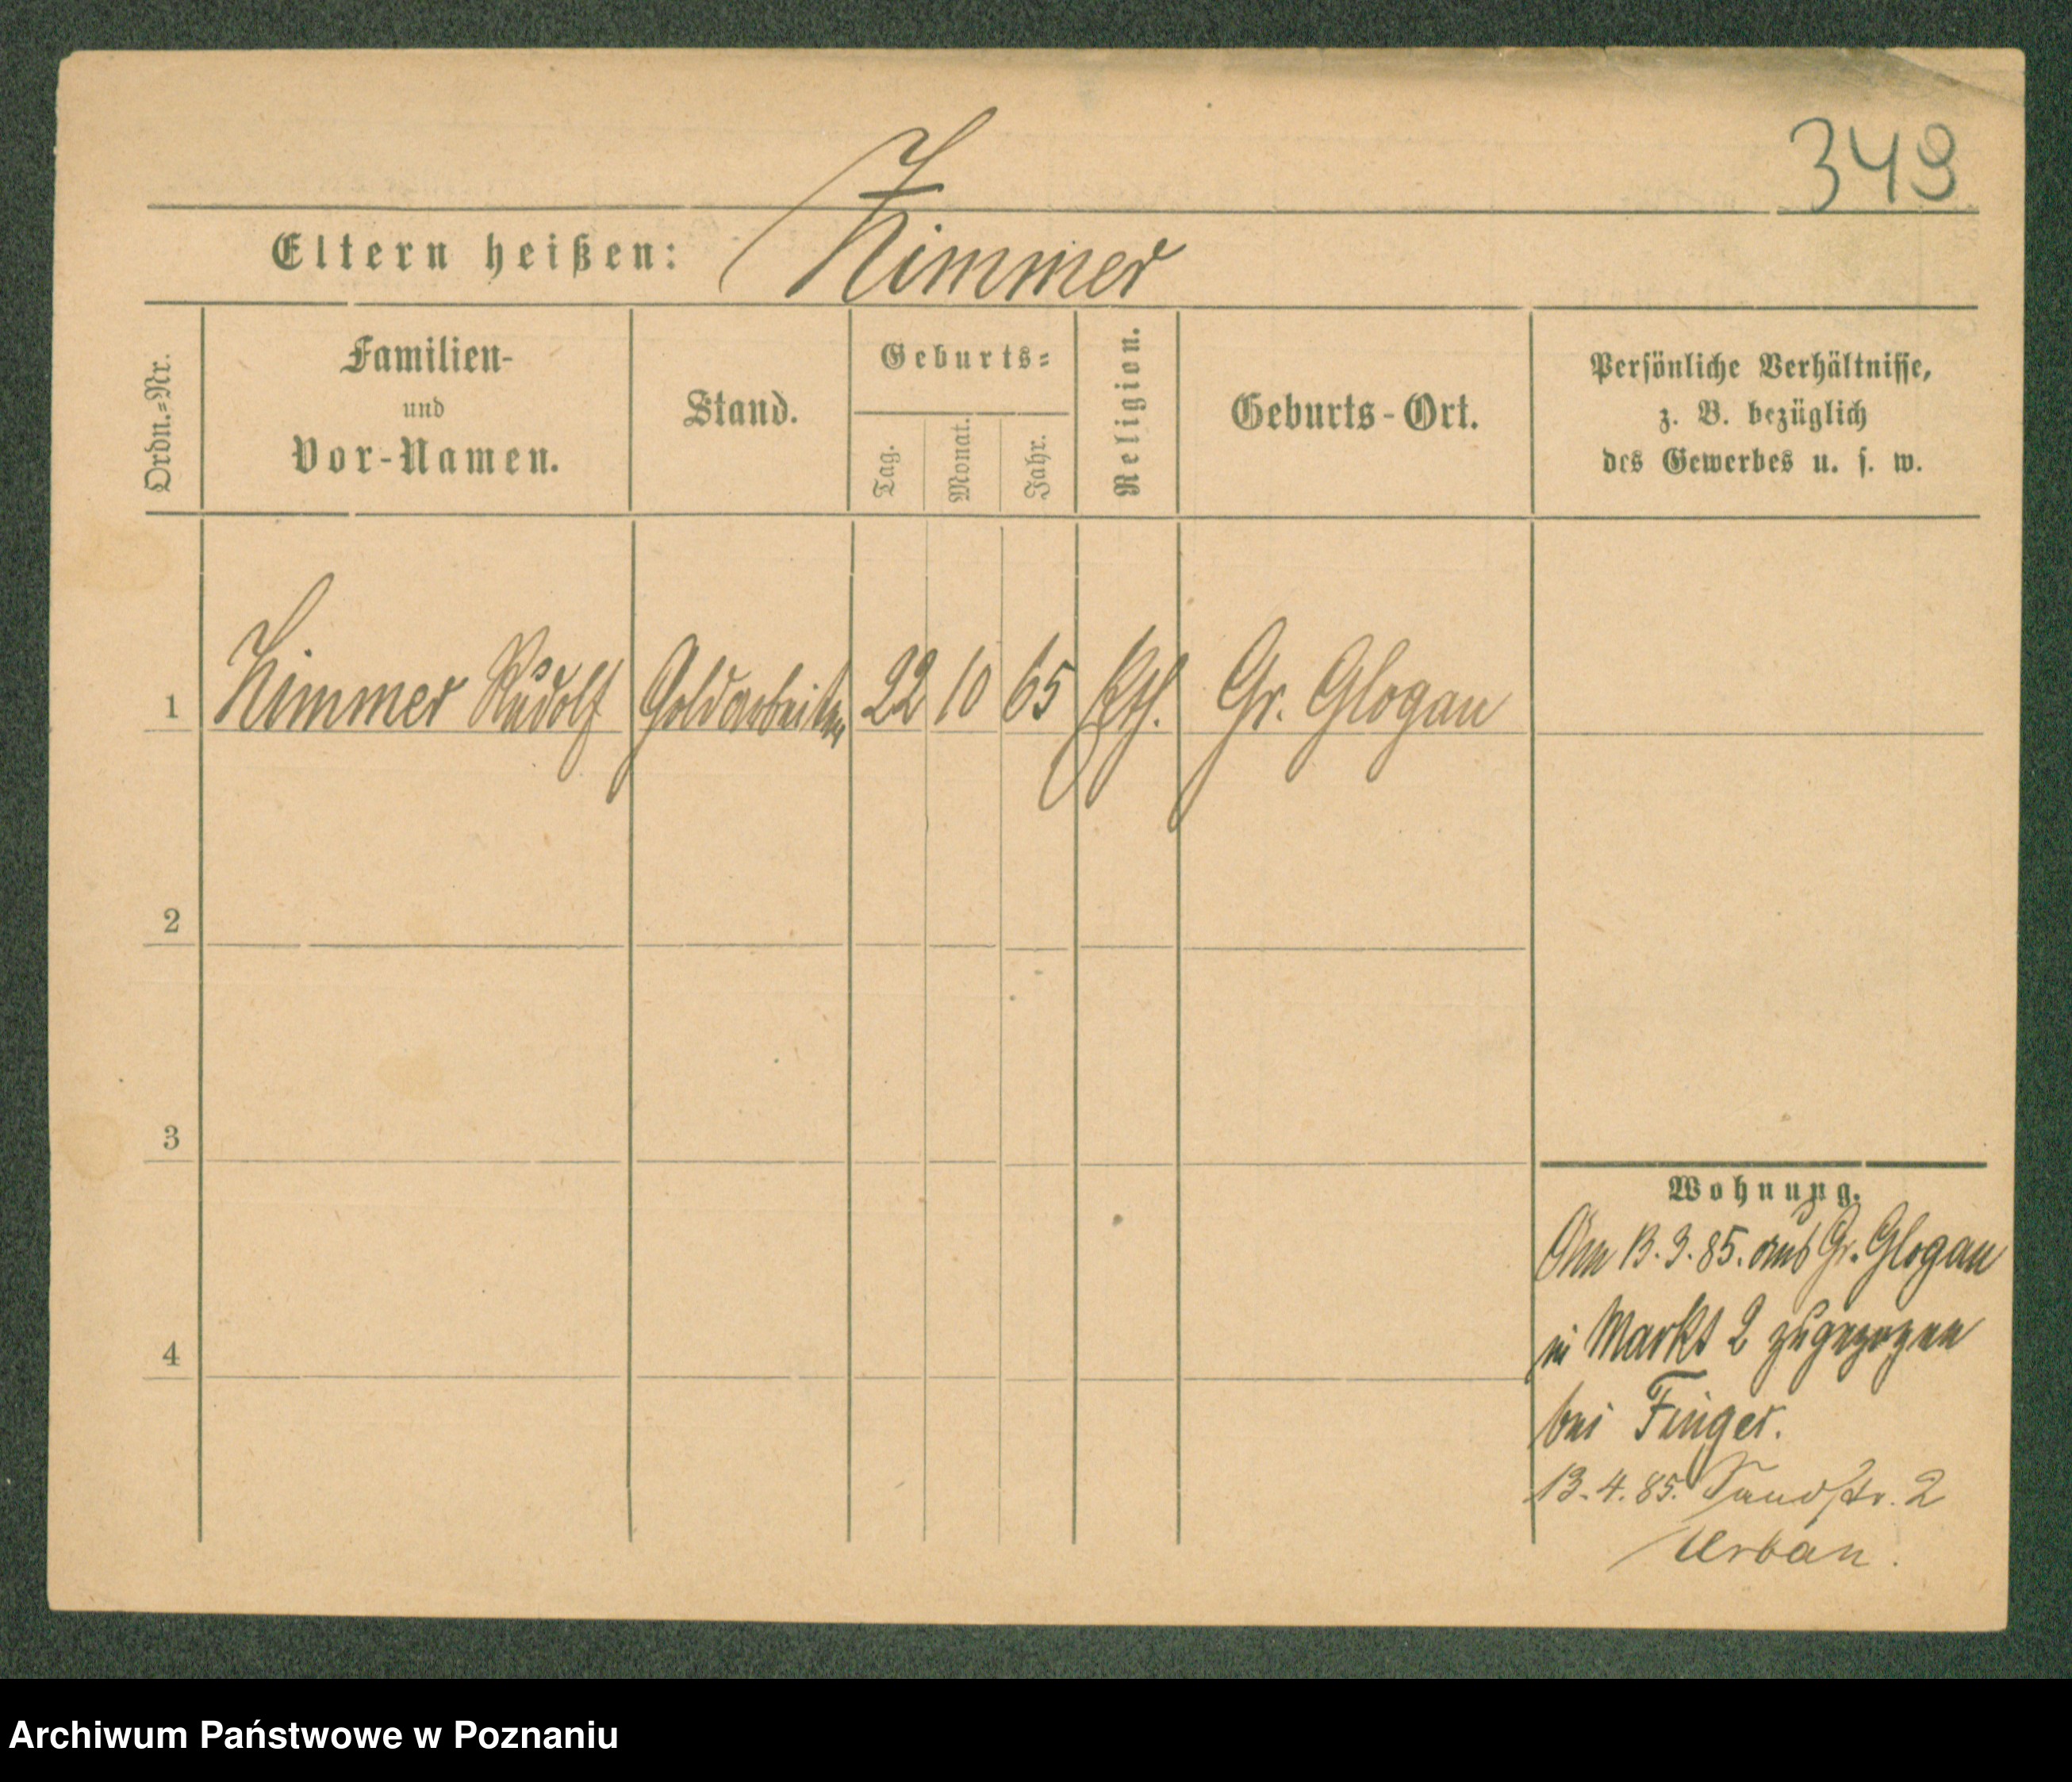 349
Eltern heißen: Zimmer
Ordn.=Nr.
Familien-
und
Vor-Namen.
Stand.
Geburts=
Tag.
Monat.
Jahr.
Religion.
Geburts-Ort.
Persönliche Verhältnisse,
z. B. bezüglich
des Gewerbes u. s. w.
1 Zimmer Rudolf Goldarbeiter 22 10 65 kth. Gr. Glogau
2
3
4
Wohnung.
Am 13.3.85. aus Gr. Glogau
in Markt 2 zugezogen
bei Finger.
13.4.85. Sandstr. 2
Urban.
Archiwum Państwowe w Poznaniu